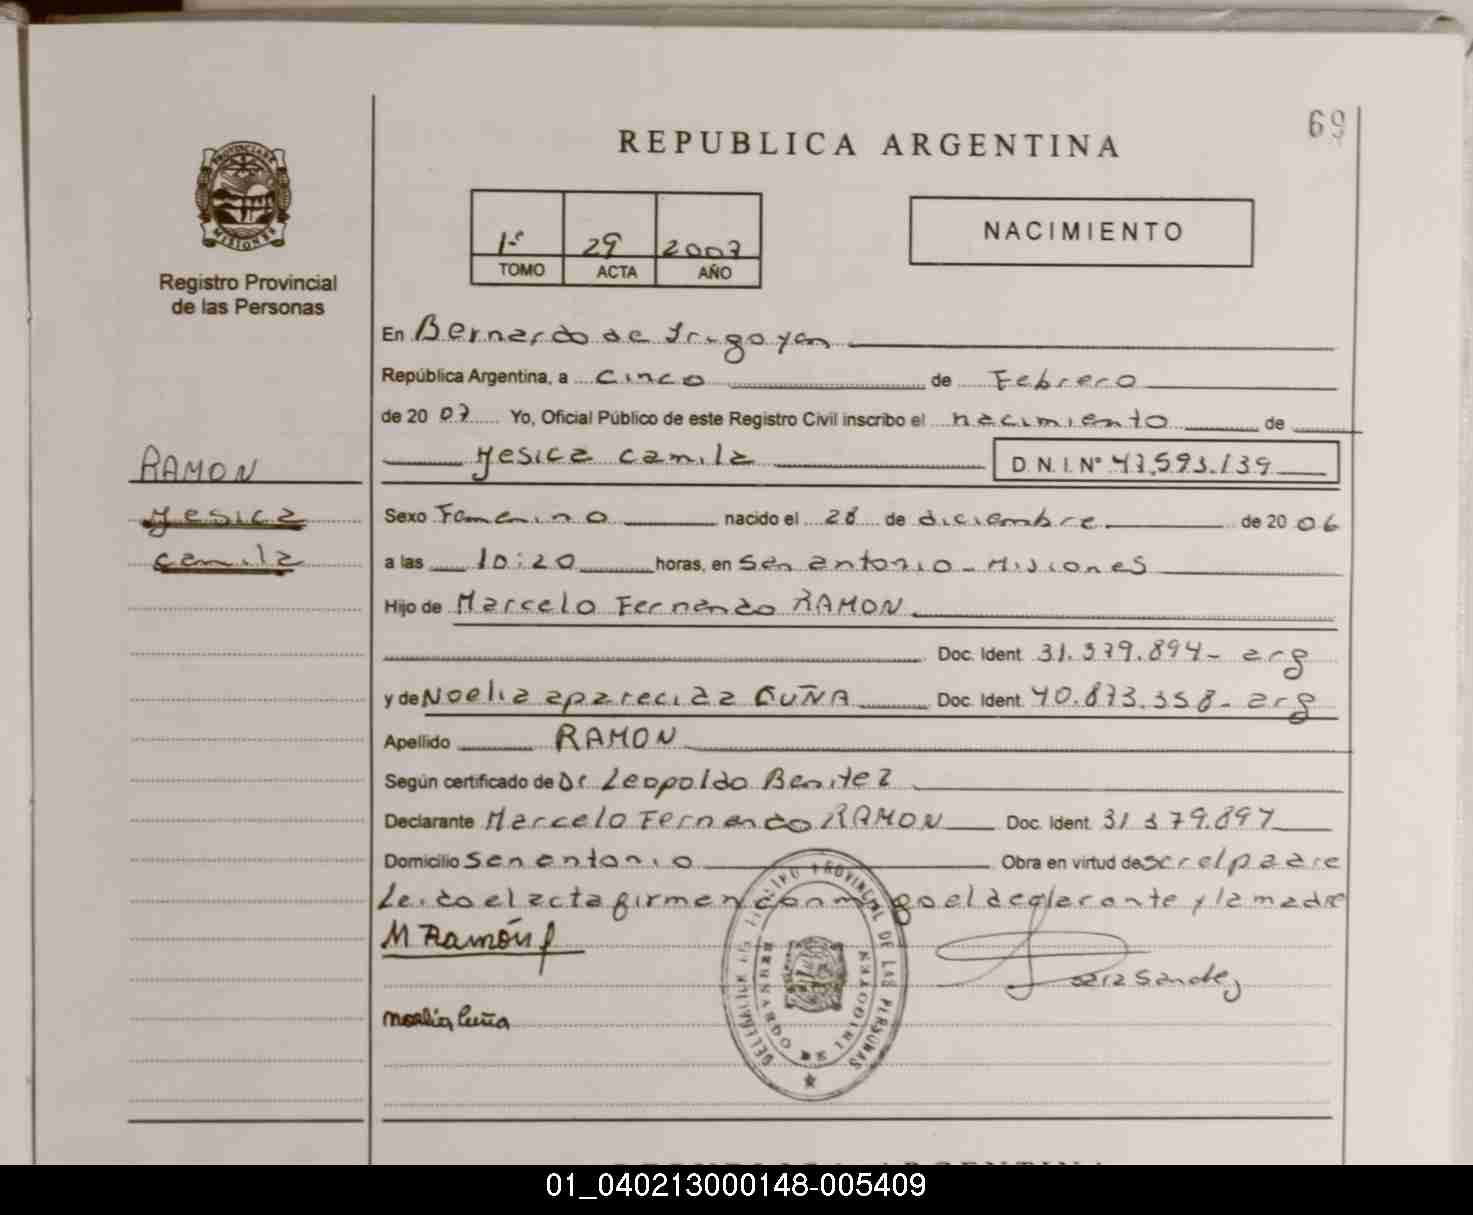 69
REPUBLICA ARGENTINA
PROVINCIA DE MISIONES
Registro Provincial
de las Personas
1º 29 2007
TOMO ACTA AÑO
NACIMIENTO
En Bernardo de Irigoyen
República Argentina, a cinco de Febrero
de 2007 Yo, Oficial Público de este Registro Civil inscribo el nacimiento de
Yesica camila D.N.I. Nº 47.593.139
RAMON
Yesica
camila
Sexo Femenino nacido el 28 de diciembre de 2006
a las 10:20 horas, en San antonio - Misiones
Hijo de Marcelo Fernando RAMON
Doc. Ident. 31.379.894 - arg
y de Noelia aparecida CUÑA Doc. Ident. 40.873.358 - arg
Apellido RAMON
Según certificado de Dr Leopoldo Benitez
Declarante Marcelo Fernando RAMON Doc. Ident. 31 379.894
Domicilio San antonio Obra en virtud de ser el padre
Leido el acta firman conmigo el declarante y la madre
M Ramón
Noelia Cuña
DELEGACION DEL REGISTRO PROVINCIAL DE LAS PERSONAS
BERNARDO DE IRIGOYEN
REPUBLICA ARGENTINA
01_040213000148-005409